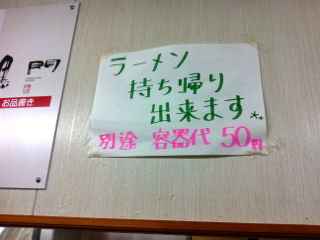 門
お品書き
ラーメン
持ち帰り
出来ます
別途 容器代 50円